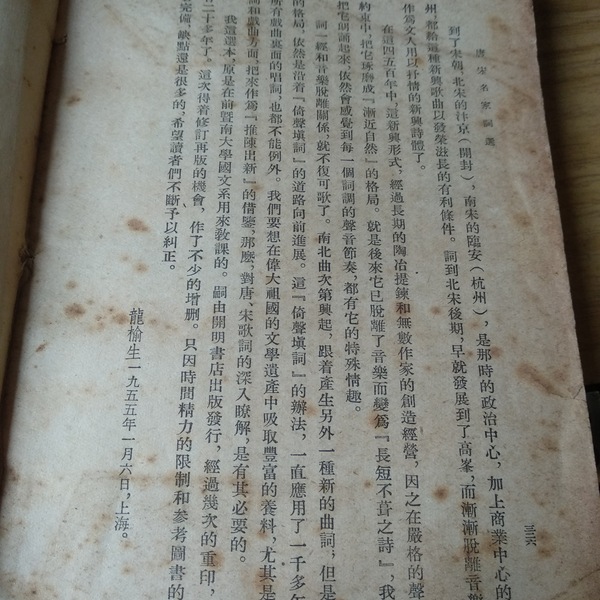 唐宋名家詞選
三六
到了宋朝，北宋的汴京（開封），南宋的臨安（杭州），是那時的政治中心，加上商業中心的
州，都給這種新興歌曲以發榮滋長的有利條件。詞到北宋後期，早就發展到了高峯，而漸漸脫離音樂
作爲文人用以抒情的新興詩體了。
在這四五百年中，這新興形式，經過長期的陶冶提鍊和無數作家的創造經營，因之在嚴格的聲
約束中，把它琢磨成『漸近自然』的格局。就是後來它已脫離了音樂而變爲『長短不葺之詩』，我
把它朗誦起來，依然會感覺到每一個詞調的聲音節奏，都有它的特殊情趣。
詞一經和音樂脫離關係，就不復可歌了。南北曲次第興起，跟着產生另外一種新的曲詞，但是
的格局，依然是沿着『倚聲填詞』的道路向前進展。這『倚聲填詞』的辦法，一直應用了一千多年
所有戲曲裏面的唱詞，也都不能例外。我們要想在偉大祖國的文學遺產中吸取豐富的養料，尤其是
詞和戲曲方面，把來作爲『推陳出新』的借鑒，那麼，對唐、宋歌詞的深入瞭解，是有其必要的。
我這選本，原是在前暨南大學國文系用來教課的。嗣由開明書店出版發行，經過幾次的重印，
二十多年了。這次得着修訂再版的機會，作了不少的增删。只因時間精力的限制和參考圖書的
完備，缺點還是很多的，希望讀者們不斷予以糾正。
龍榆生一九五五年一月六日，上海。